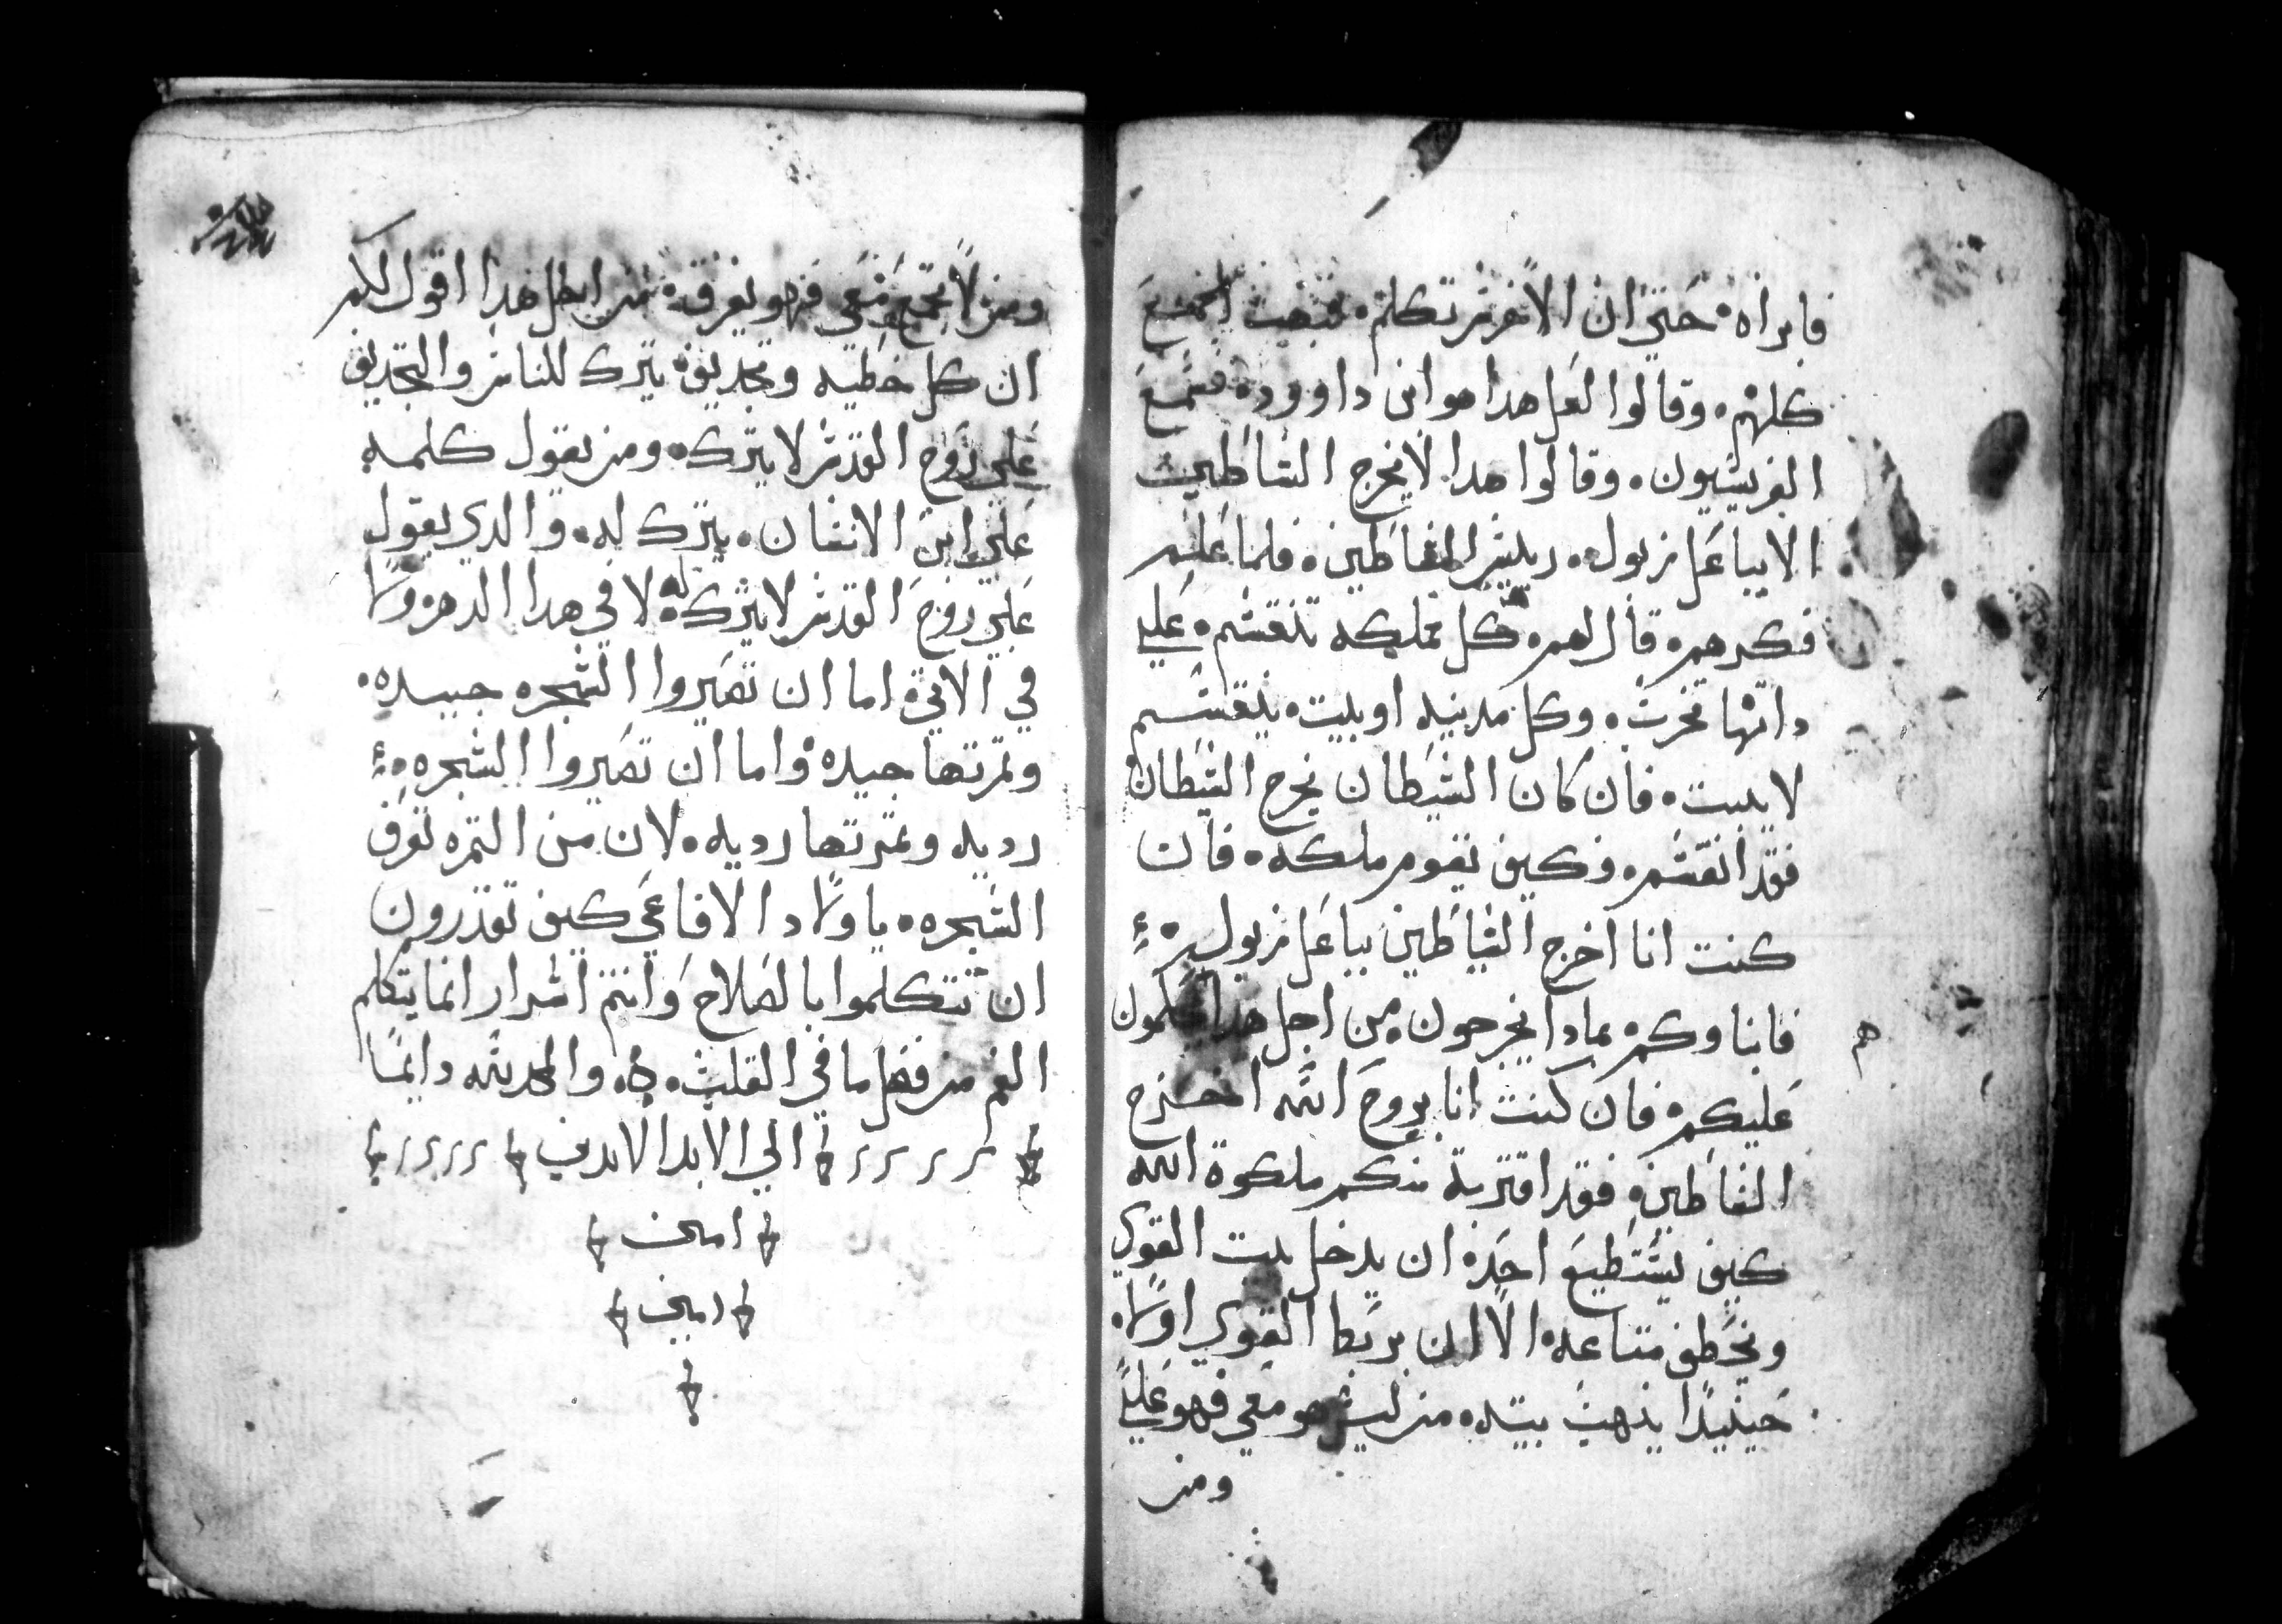 فابراه حتي ان الاخرس تكلم فتعجب الجمع
كلهم وقالوا لعل هدا هو ابن داوود فسمع
الفريسيون وقالوا هدا لا يخرج الشياطين
الا بباعل زبول ريليس الشياطين فلما علم
فكرهم قال لهم كل مملكه تنقسم علي
داتها تخرب وكل مدينه او بيت ينقسم
لا يثبت فان كان الشيطان يخرج الشيطان
فقد انقسم فكيف تقوم ملكه فان
كنت انا اخرج الشياطين بباعل زبول
فابناوكم بمادا يخرجون من اجل هدا يحكمون
هم
عليكم فان كنت انا بروح الله اخرج
الشياطين فقد اقتربة منكم ملكوة الله
كيف يستطيع احد ان يدخل بيت القوي
ويخطف متاعه الا ان يربط القوي اولا
حينيدا ينهب بيته من ليس هو معي فهو علي
ومن
ومن لا يجمع معي فهو يفرق من اجل هدا اقول لكم
ان كل خطيه وتجديف يترك للناس والتجديف
علي روح القدس لا يترك ومن يقول كلمه
علي ابن الانسان يترك له والدي يقول
علي روح القدس لا يترك له لا في هدا الدهر ولا
في الاتي اما ان تصيروا الشجره جيده
وتمرتها جيده واما ان تصيروا الشجره
رديه وتمرتها رديه لان من التمره تعرف
الشجره يا ولاد الافاعي كيف تقدرون
ان تتكلموا بالصلاح وانتم اشرار انما يتكلم
الفم من فضل ما في القلب والمجد لله دايما
الي الابد الابدين
امين
امين